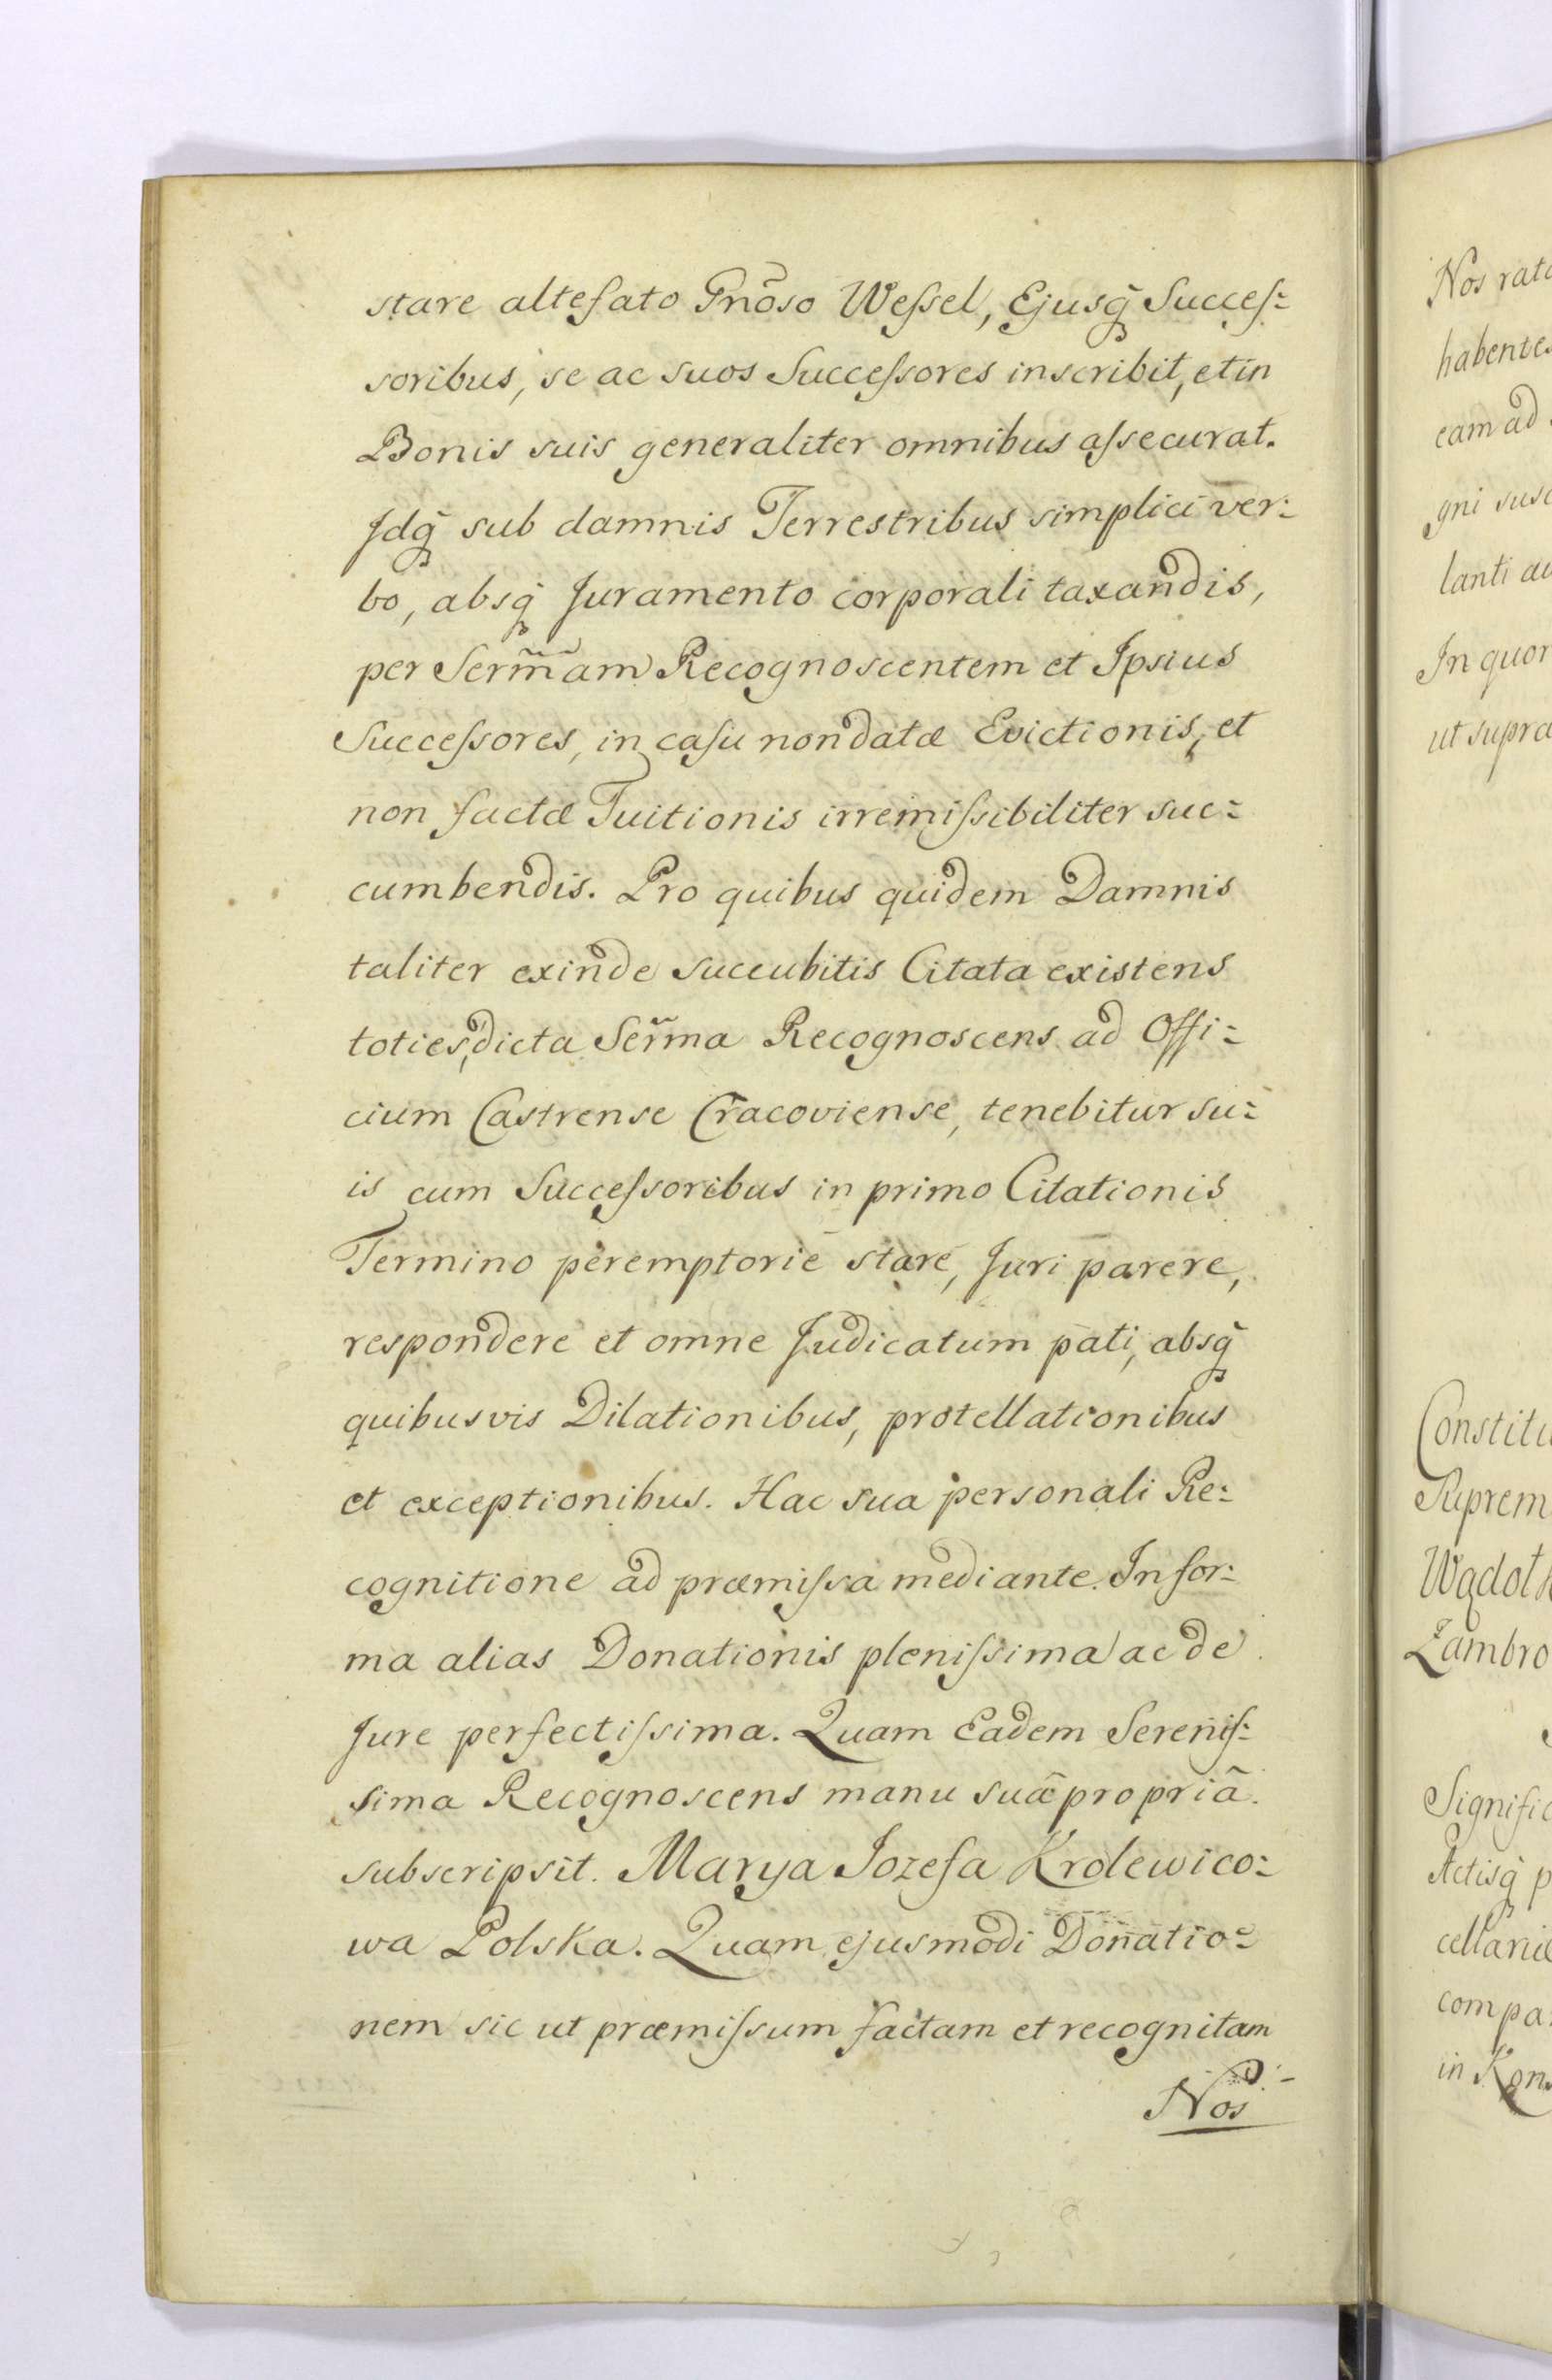 stare altefato Gnõso Weſsel, Ejusq̃ Succeſ:
soribus, se ac suos Succeſsores inscribit, et in
Bonis suis generaliter omnibus aſsecurat.
Idq̃ sub damnis Terrestribus simplici ver:
bo, absq̃ Juramento corporali taxandis,
per Serm̃am Recognoscentem et Ipsius
Succeſsores, in casu non datæ Evictionis, et
non factæ Tuitionis irremiſsibiliter suc:
cumbendis. Pro quibus quidem Damnis
taliter exinde succubitis Citata existens
toties, dicta Serm̃a Recognoscens ad Offi:
cium Castrense Cracoviense, tenebitur su:
is cum Succeſsoribus in primo Citationis
Termino peremptorie stare, Juri parere,
respondere et omne Judicatum pati, absq̃
quibusvis Dilationibus, protellationibus
et exceptionibus. Hac sua personali Re:
cognitione ad præmiſsa mediante. In for:
ma alias Donationis pleniſsima ac de
Jure perfectiſsima. Quam Eadem Sereniſ:
sima Recognoscens manu suâ propriâ
subscripsit. Marya Jozefa Krolewico:
wa Polska. Quam ejusmodi Donatio:
nem sic ut præmiſsum factam et recognitam
Nos
Nos
habentes
eam ad
gni
lanti
In
ut supra
in